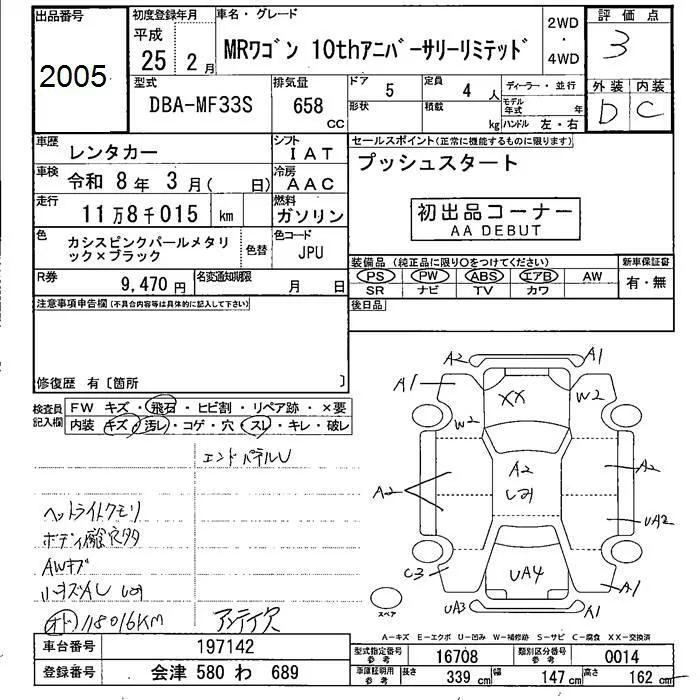 出品番号
2005
初度登録年月
平成
25 年 2 月
車名・グレード
MRワゴン 10thアニバーサリーリミテッド
2WD
・
4WD
評価点
3
外装 内装
D C
型式
DBA-MF33S
排気量
658
CC
ドア
5
定員
4 人
形状
積載
kg
ディーラー・並行
モデル年式 年
ハンドル 左・右
車歴
レンタカー
シフト
IAT
車検
令和 8年 3月( 日)
冷房
AAC
走行
11万8千015 km
燃料
ガソリン
色
カシスピンクパールメタリック×ブラック
色替
色コード
JPU
R券
9,470 円
名変通知期限
月 日
セールスポイント(正常に機能するものに限ります)
プッシュスタート
初出品コーナー
AA DEBUT
装備品 (純正品に限り○をつけてください)
PS PW ABS エアB AW
SR ナビ TV カワ
新車保証書
有・無
後日品
注意事項申告欄(不具合内容等は具体的に記入して下さい)
修復歴 有〔箇所 〕
検査員記入欄
FW キズ・飛石・ヒビ割・リペア跡・×要
内装 キズ・汚レ・コゲ・穴・スレ・キレ・破レ
エンドパネルU
ヘットライトクモリ
ボディ
AWキズ
118016KM
アンテナ欠
A2 A1
A1 XX W2
W2
A2
A2
A2
UA2
C3
UA4
A1
UA3
A1
スペア
A-キズ E-エクボ U-凹み W-補修跡 S-サビ C-腐食 XX-交換済
車台番号
197142
登録番号
会津 580 わ 689
型式指定番号
参考
16708
類別区分番号
参考
0014
車庫証明用
参考
長さ
339 cm
幅
147 cm
高さ
162 cm